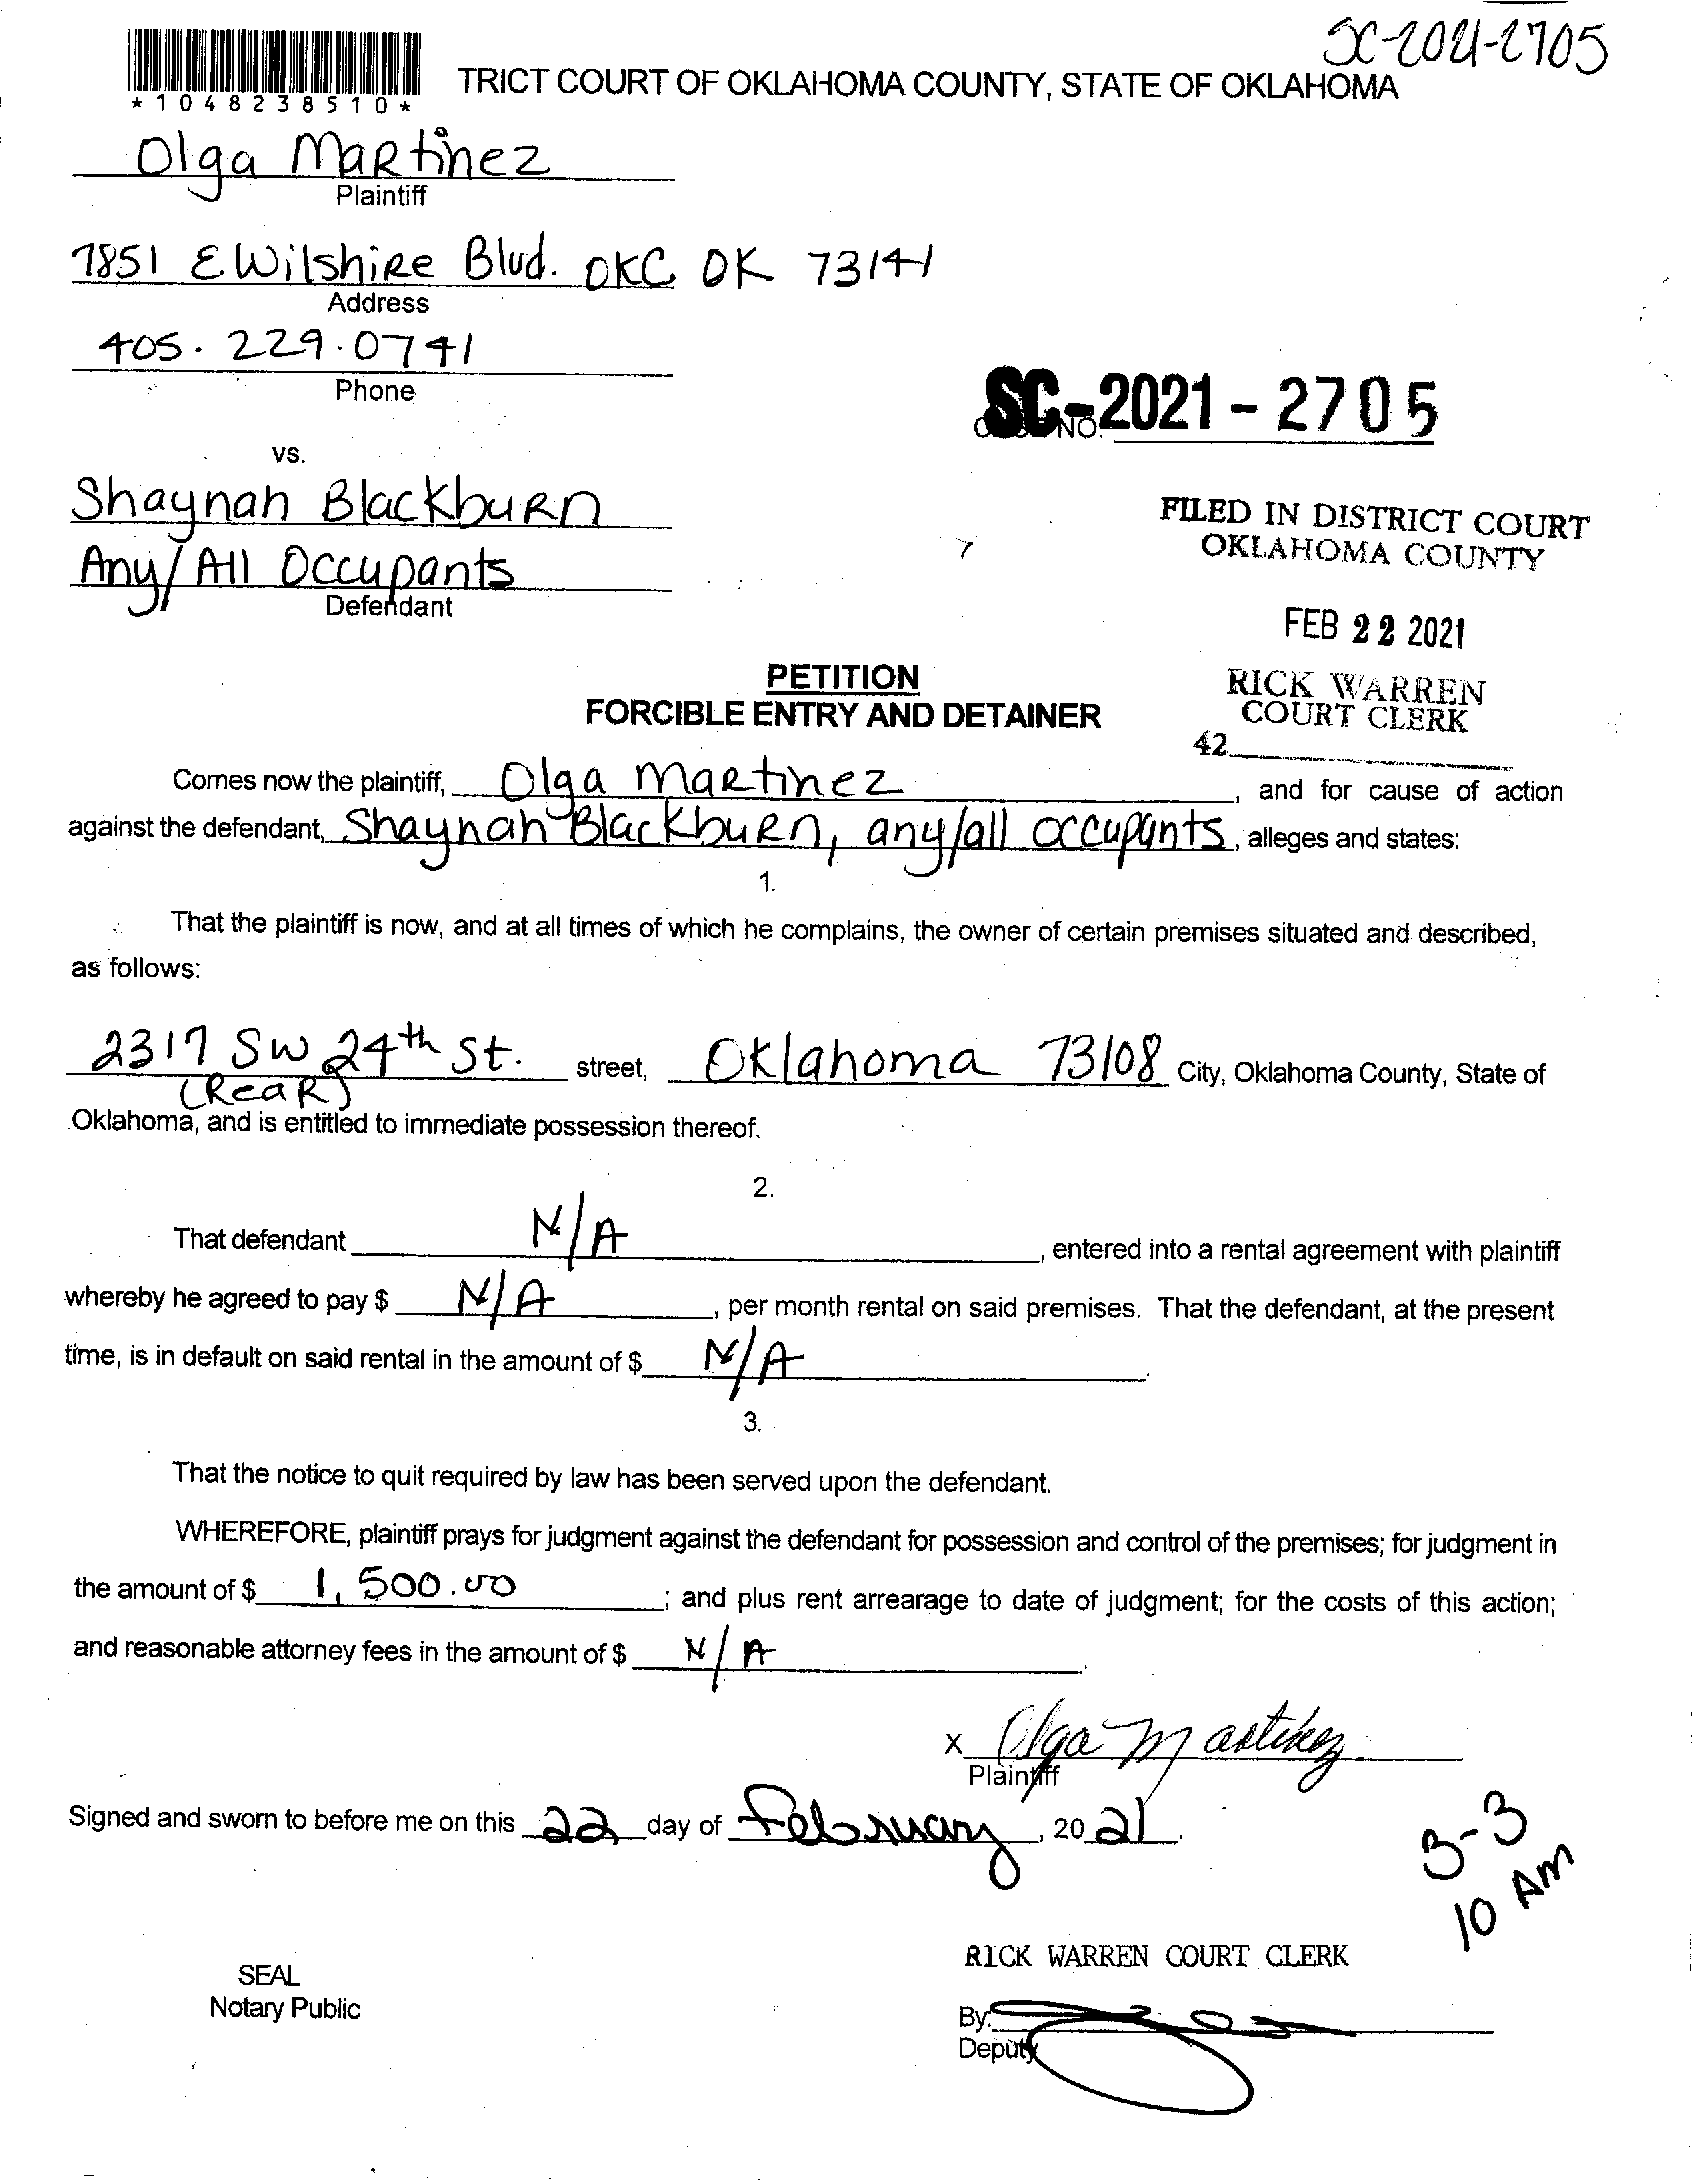 SC-2021-2705
TRICT COURT OF OKLAHOMA COUNTY, STATE OF OKLAHOMA
*1048238510*
Olga Martinez
Plaintiff
7851 E Wilshire Blvd. OKC OK 73141
Address
405.229.0741
Phone
SC-2021-2705
NO.
vs.
Shaynah Blackburn
Any/All Occupants
Defendant
FILED IN DISTRICT COURT
OKLAHOMA COUNTY
FEB 22 2021
RICK WARREN
COURT CLERK
42
PETITION
FORCIBLE ENTRY AND DETAINER
Comes now the plaintiff, Olga Martinez, and for cause of action
against the defendant, Shaynah Blackburn, any/all occupants, alleges and states:
1.
That the plaintiff is now, and at all times of which he complains, the owner of certain premises situated and described,
as follows:
2317 SW 24th St. street, Oklahoma 73108 City, Oklahoma County, State of
(Rear)
Oklahoma, and is entitled to immediate possession thereof.
2.
That defendant N/A, entered into a rental agreement with plaintiff
whereby he agreed to pay $ N/A, per month rental on said premises. That the defendant, at the present
time, is in default on said rental in the amount of $ N/A.
3.
That the notice to quit required by law has been served upon the defendant.
WHEREFORE, plaintiff prays for judgment against the defendant for possession and control of the premises; for judgment in
the amount of $ 1,500.00; and plus rent arrearage to date of judgment; for the costs of this action;
and reasonable attorney fees in the amount of $ N/A.
x Olga Martinez
Plaintiff
Signed and sworn to before me on this 22 day of February, 2021.
3-3
10 AM
RICK WARREN COURT CLERK
SEAL
Notary Public
By:
Deputy